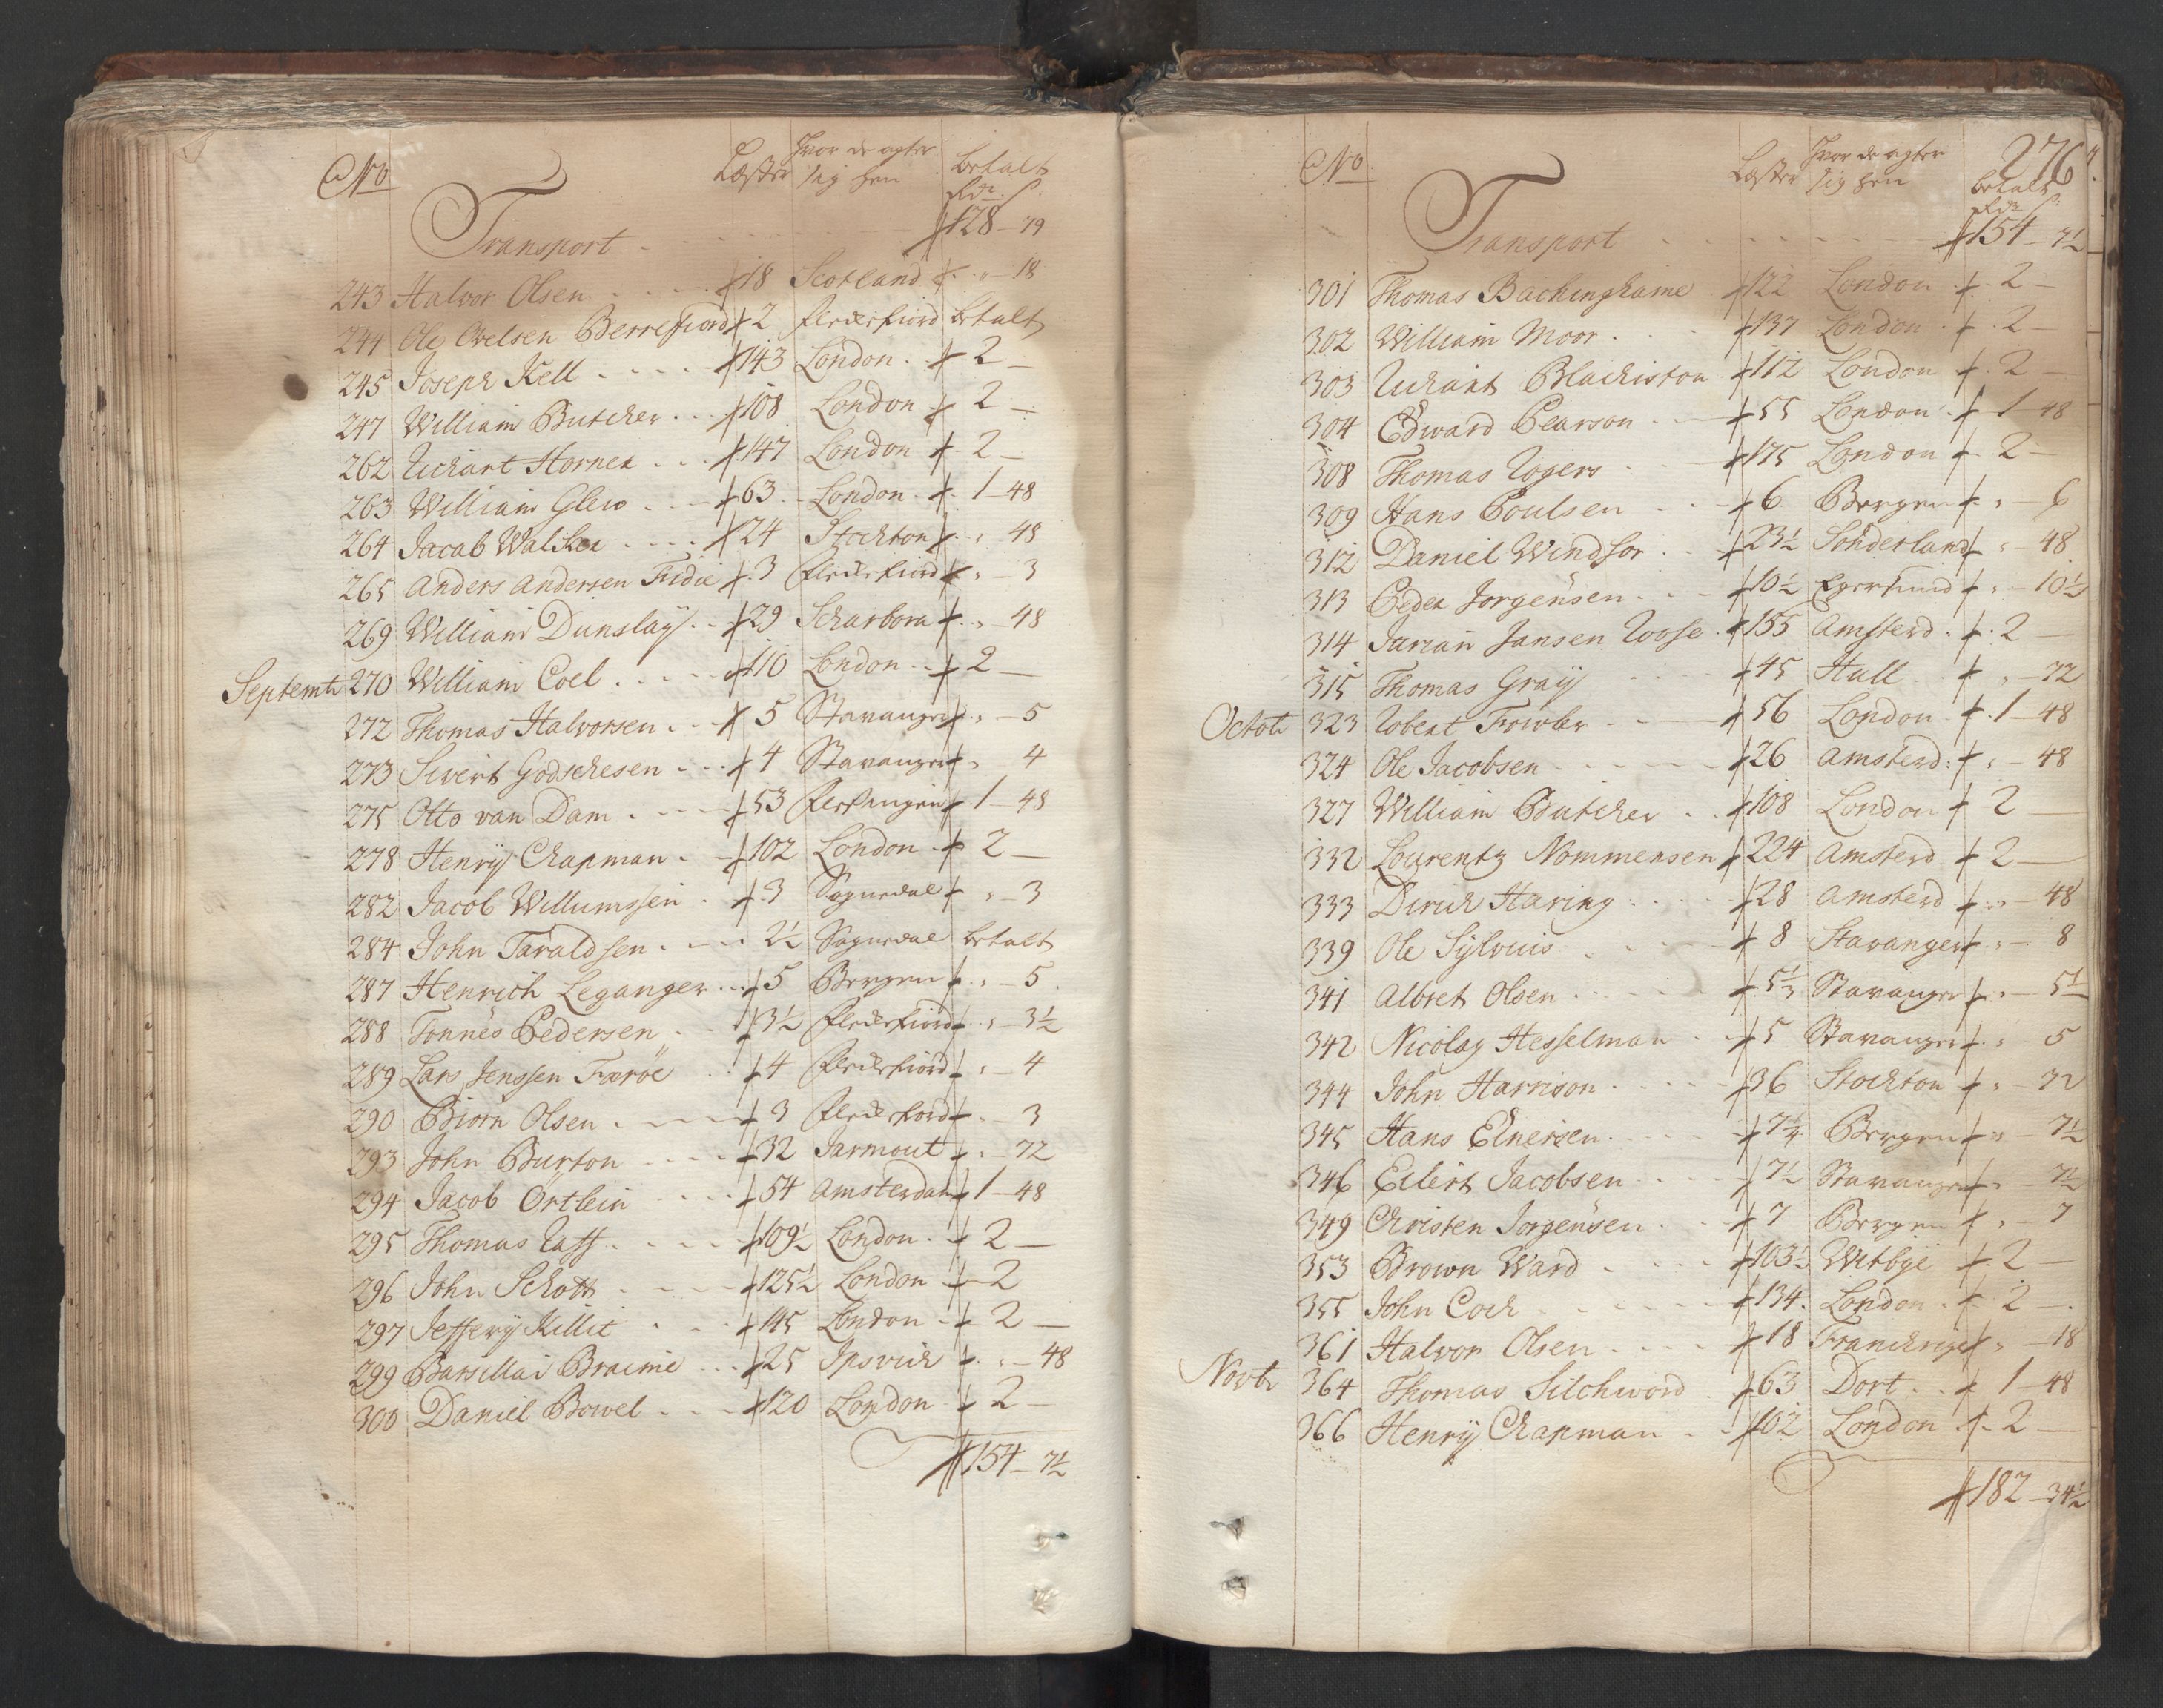 No Læster Hvor de agter sig hen betalt
Rdr. s.
Transport 128 - 79
243 Halvor Olsen 18 Scotland " - 18
244 Ole Orelsen Berrefiord 2 flechefiord betalt
245 Joseph Kell 143 London 2 -
247 William Butcher 108 London 2 -
262 Richart Horner 147 London 2 -
263 William Glew 63 London 1 - 48
264 Jacob Walker 24 Stockton " 48
265 Anders Andersen Fidie 3 flechefiord " - 3
269 William Dunslaÿ 29 Scharbora " - 48
Septembr 270 William Coel 110 London 2 -
272 Thomas Halvorsen 5 Stavanger " - 5
273 Sivert Godschesen 4 Stavanger " 4
275 Otto van Dam 53 1 - 48
278 Henrÿ Chapman 102 London 2 -
282 Jacob Willumssen 3 Sognedal " - 3
284 John Taraldsen 2½ Sognedal betalt
287 Henrich Leganger 5 Bergen " - 5
288 Tönnes Pedersen 3½ flechefiord " - 3½
289 Lars Jenssen Færöe 4 flechefiord " - 4
290 Biorn Olsen 3 flechefiord " - 3
293 John Burton 32 Jarmout " - 72
294 Jacob Örtlein 54 Amsterdam 1 - 48
295 Thomas Raff 109½ London 2 -
296 John Schott 125½ London 2
297 Jefferÿ Killit 145 London 2 -
299 Barsillai Braimie 25 Ipsvich " - 48
300 Daniel Bowel 120 London 2 -
154 - 7½
276
No Læster Hvor de agter sig hen betalt
Rdr. s.
Transport 154 - 7½
301 Thomas Backinghaime 122 London 2 -
302 William Moor 137 London 2 -
303 Richart Blackiston 112 London 2 -
304 Edward Pearson 55 London 1 - 48
308 Thomas Rogers 175 London 2 -
309 Hans Poulsen 6 Bergen " - 6
312 Daniel Windsor 23½ Sonderland " 48
313 Peder Jorgensen 10½ Egersund " - 10½
314 Jurian Jansen Roose 155 Amsterd. 2 -
315 Thomas Graÿ 45 Hull " - 72
Octobr 323 Robert Fowler 56 London 1 - 48
324 Ole Jacobsen 26 Amsterd: " - 48
327 William Butcher 108 London 2 -
332 Lourentz Nommensen 224 Amsterd 2 -
333 Dirich Haring 28 Amsterd " - 48
339 Ole Sÿlvius 8 Stavanger " - 8
341 Albret Olsen 5½ Stavanger " - 5½
342 Nicolay Hesselman 5 Stavanger " 5
344 John Harrison 36 Stockton " 72
345 Hans Elnersen 7½ Bergen " - 7½
346 Eilert Jacobsen 7½ Stavanger " - 7½
349 Christen Jorgensen 7 Bergen " - 7
353 Brown Ward 103½ Witbÿe 2 -
355 John Cock 134 London 2 -
361 Halvor Olsen 18 Franckrige " - 18
Novbr 364 Thomas Silchword 63 Dort 1 - 48
366 Henrÿ Chapman 102 London 2 -
182 - 34½